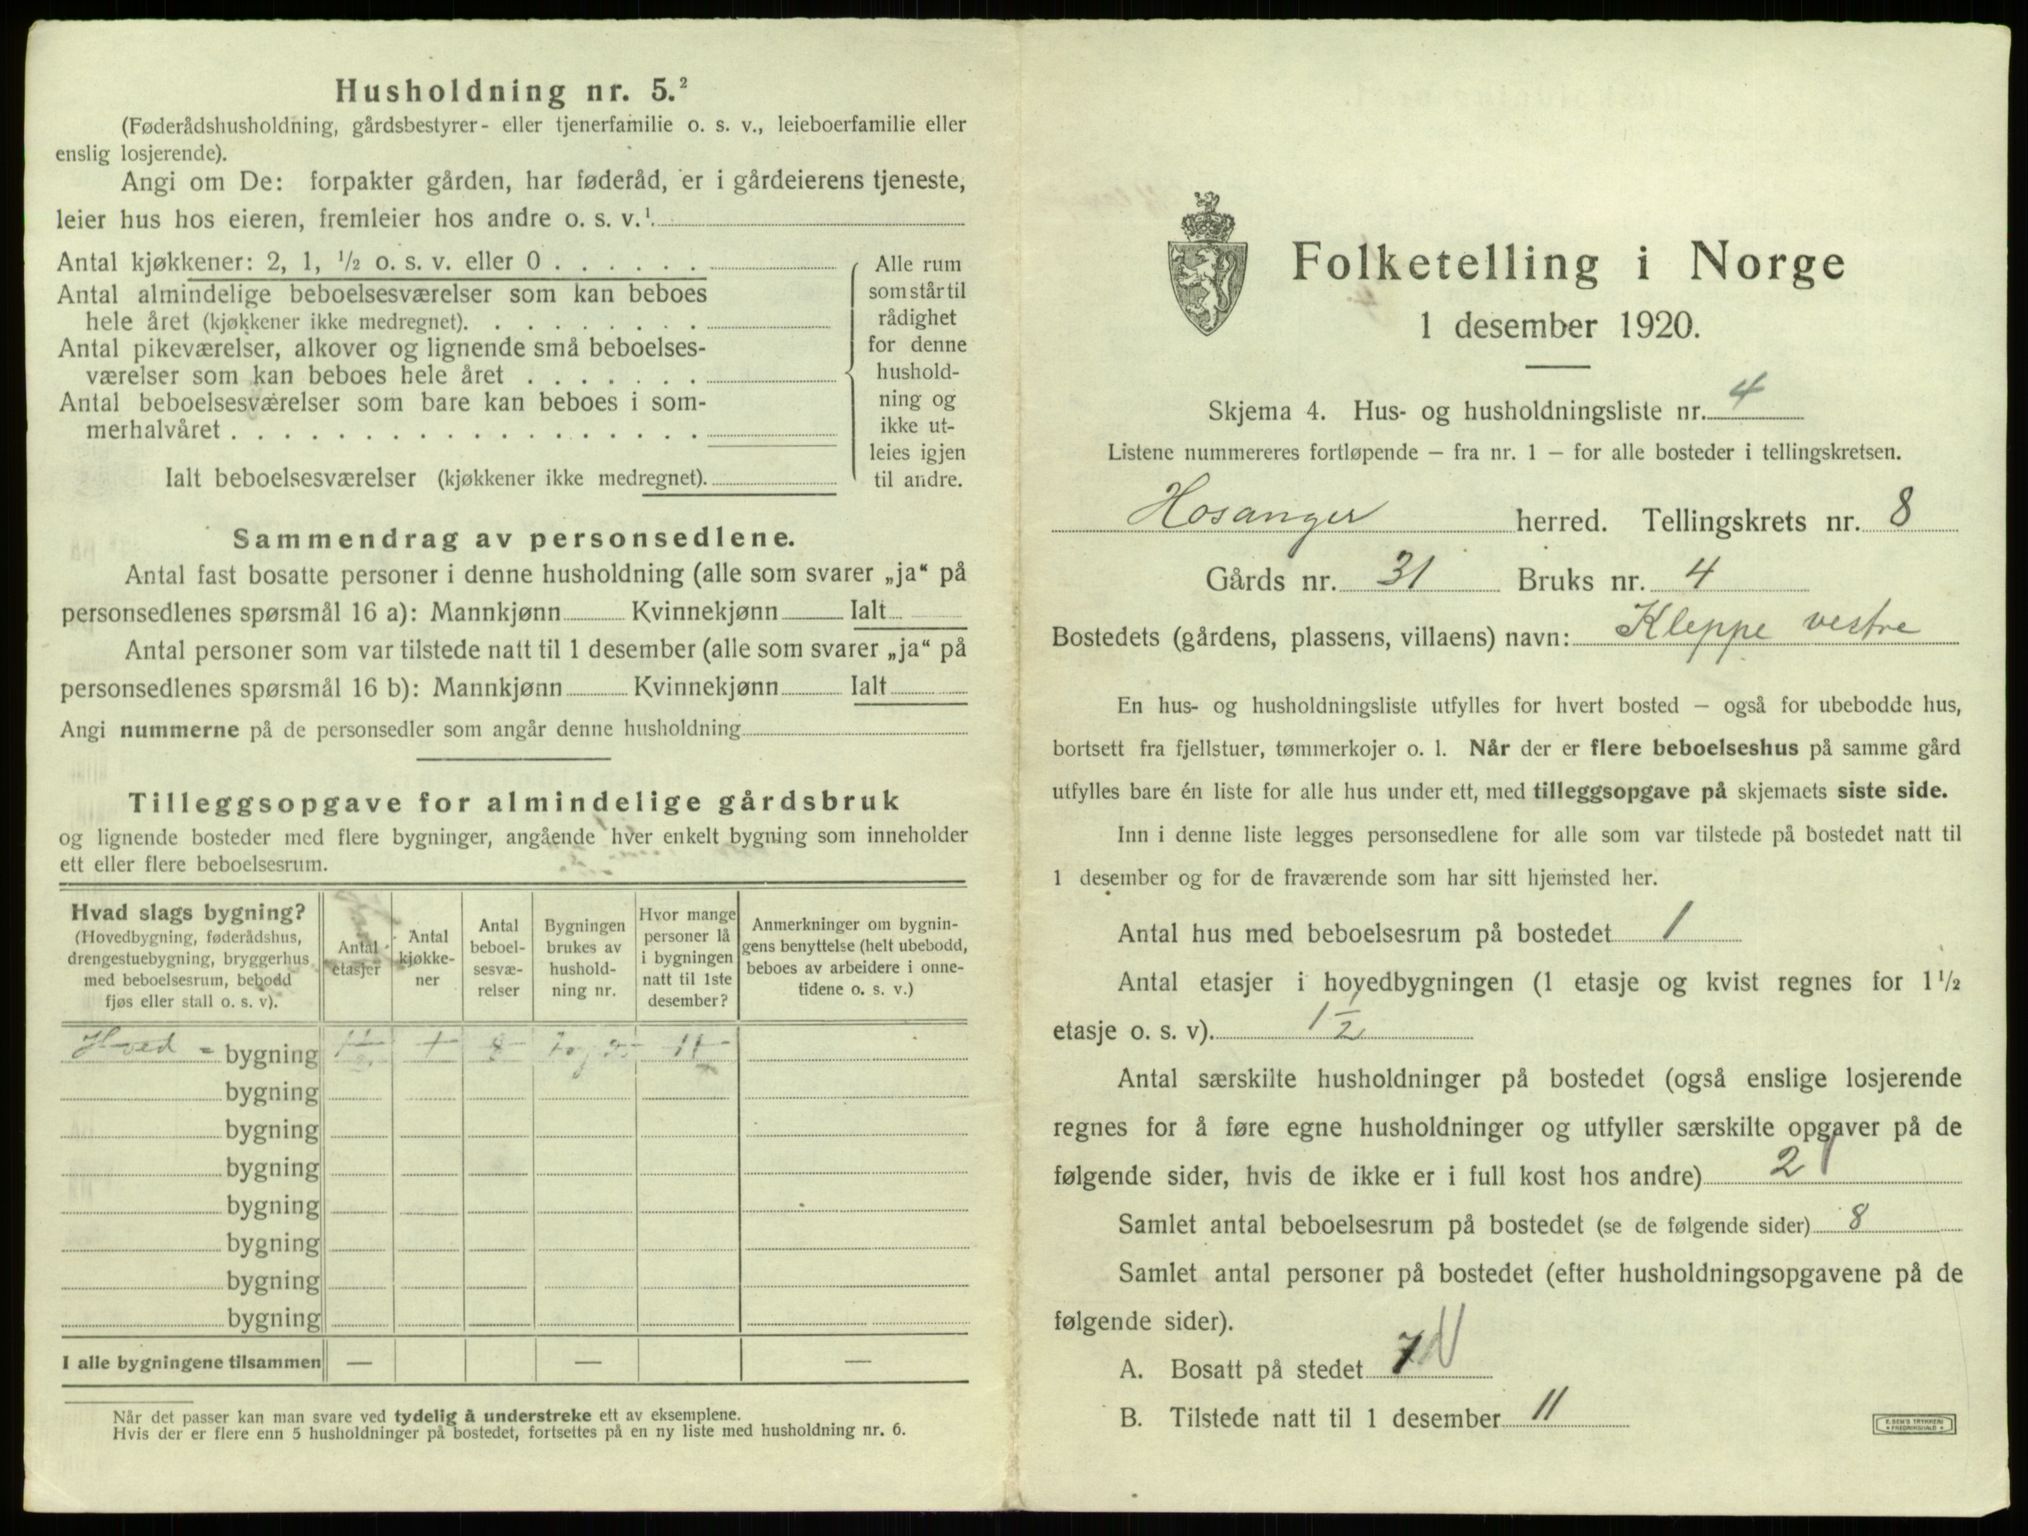 Husholdning nr. 5.²
(Føderådshusholdning, gårdsbestyrer- eller tjenerfamilie o. s. v., leieboerfamilie eller
enslig losjerende).
Angi om De: forpakter gården, har føderåd, er i gårdeierens tjeneste,
leier hus hos eieren, fremleier hos andre o. s. v.¹
Antal kjøkkener: 2, 1, ½ o. s. v. eller 0
Antal almindelige beboelsesværelser som kan beboes
hele året (kjøkkener ikke medregnet).
Antal pikeværelser, alkover og lignende små beboelses-
værelser som kan beboes hele året
Antal beboelsesværelser som bare kan beboes i som-
merhalvåret
Ialt beboelsesværelser (kjøkkener ikke medregnet).
Alle rum
som står til
rådighet
for denne
hushold-
ning og
ikke ut-
leies igjen
til andre.
Sammendrag av personsedlene.
Antal fast bosatte personer i denne husholdning (alle som svarer „ja“ på
personsedlenes spørsmål 16 a): Mannkjønn Kvinnekjønn Ialt
Antal personer som var tilstede natt til 1 desember (alle som svarer „ja“ på
personsedlenes spørsmål 16 b): Mannkjønn Kvinnekjønn Ialt
Angi nummerne på de personsedler som angår denne husholdning
Tilleggsopgave for almindelige gårdsbruk
og lignende bosteder med flere bygninger, angående hver enkelt bygning som inneholder
ett eller flere beboelsesrum.
Hvad slags bygning?
(Hovedbygning, føderådshus,
drengestuebygning, bryggerhus
med beboelsesrum, bebodd
fjøs eller stall o. s. v).
Antal
etasjer
Antal
kjøkke-
ner
Antal
beboel-
sesvæ-
relser
Bygningen
brukes av
hushold-
ning nr.
Hvor mange
personer lå
i bygningen
natt til 1ste
desember?
Anmerkninger om bygnin-
gens benyttelse (helt ubebodd,
beboes av arbeidere i onne-
tidene o. s. v.)
Hved - bygning 1½ 1 8 11
bygning
bygning
bygning
bygning
bygning
bygning
bygning
I alle bygningene tilsammen — — —
Når det passer kan man svare ved tydelig å understreke ett av eksemplene.
Hvis der er flere enn 5 husholdninger på bostedet, fortsettes på en ny liste med husholdning nr. 6.
Folketelling i Norge
1 desember 1920.
Skjema 4. Hus- og husholdningsliste nr. 4
Listene nummereres fortløpende – fra nr. 1 – for alle bosteder i tellingskretsen.
Hosanger herred. Tellingskrets nr. 8
Gårds nr. 31 Bruks nr. 4
Bostedets (gårdens, plassens, villaens) navn: Kleppe vestre
En hus- og husholdningsliste utfylles for hvert bosted – også for ubebodde hus,
bortsett fra fjellstuer, tømmerkojer o. l. Når der er flere beboelseshus på samme gård
utfylles bare én liste for alle hus under ett, med tilleggsopgave på skjemaets siste side.
Inn i denne liste legges personsedlene for alle som var tilstede på bostedet natt til
1 desember og for de fraværende som har sitt hjemsted her.
Antal hus med beboelsesrum på bostedet 1
Antal etasjer i hovedbygningen (1 etasje og kvist regnes for 1½
etasje o. s. v). 1½
Antal særskilte husholdninger på bostedet (også enslige losjerende
regnes for å føre egne husholdninger og utfyller særskilte opgaver på de
følgende sider, hvis de ikke er i full kost hos andre) 2
Samlet antal beboelsesrum på bostedet (se de følgende sider) 8
Samlet antal personer på bostedet (efter husholdningsopgavene på de
følgende sider).
A. Bosatt på stedet 7
B. Tilstede natt til 1 desember 11
E. SEM'S TRYKKERI
FREDRIKSHALD